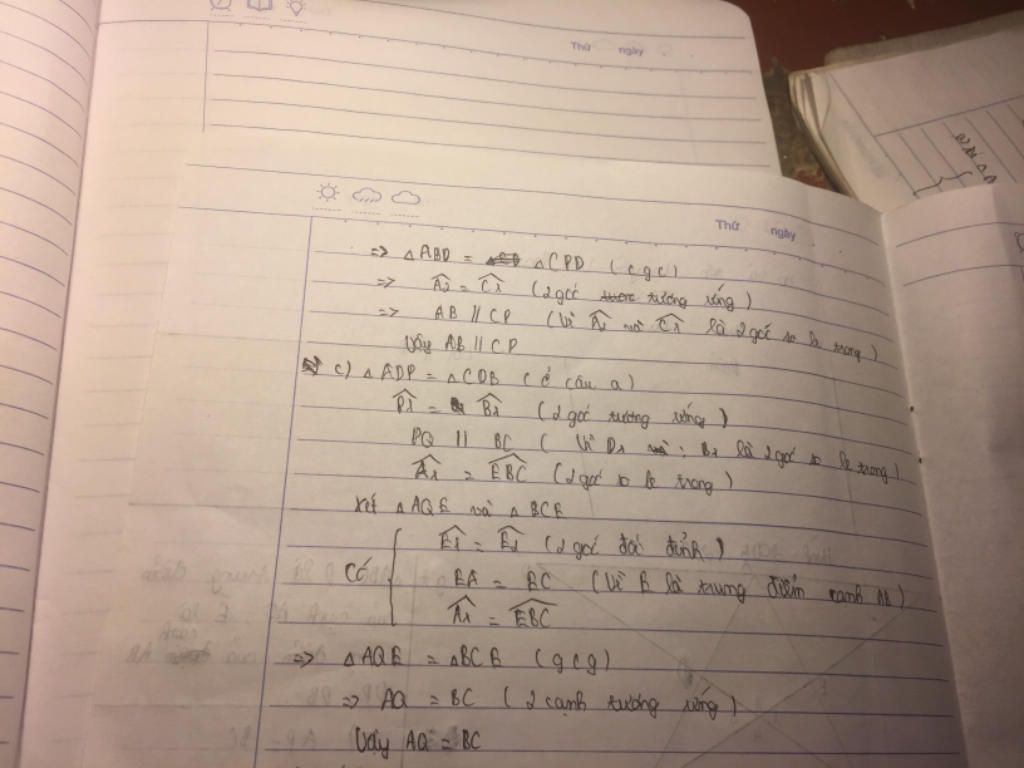 Thứ ngày
Thứ ngày
=> △ABD = △CPD (c g c)
=> Â₂ = Ĉ₁ (2 góc tương ứng)
=> AB // CP (vì Â₂ và Ĉ₁ là 2 góc so le trong)
Vậy AB // CP
c) △ADP = △CDB (ở câu a)
P̂₁ = B̂₁ (2 góc tương ứng)
PQ // BC (vì P₁ và B₁ là 2 góc so le trong)
Â₁ = EBC (2 góc so le trong)
Xét △AQE và △BCE
Có
Ê₁ = Ê₂ (2 góc đối đỉnh)
EA = BC (vì E là trung điểm cạnh AB)
Â₁ = EBC
=> △AQE = △BCE (g c g)
=> AQ = BC (2 cạnh tương ứng)
Vậy AQ = BC